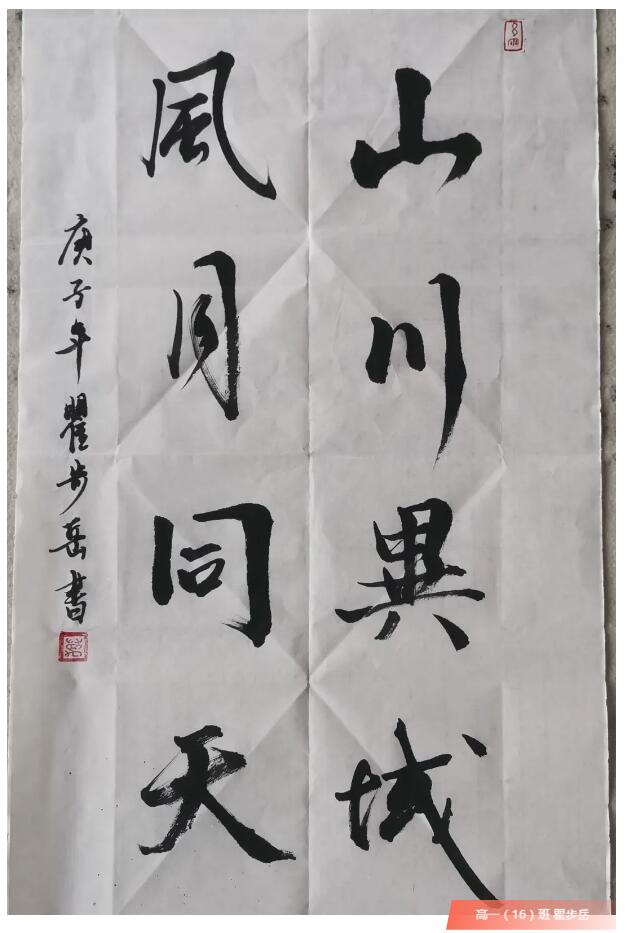 山川異域
風月同天
庚子年瞿步岳書
高一（16）班 瞿步岳